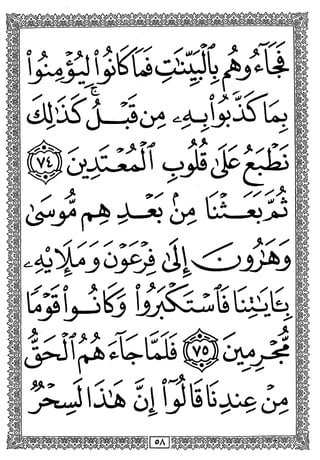 فَجَآءُوهُم بِٱلْبَيِّنَٰتِ فَمَا كَانُوا۟ لِيُؤْمِنُوا۟
بِمَا كَذَّبُوا۟ بِهِۦ مِن قَبْلُ ۚ كَذَٰلِكَ
نَطْبَعُ عَلَىٰ قُلُوبِ ٱلْمُعْتَدِينَ ٧٤
ثُمَّ بَعَثْنَا مِنۢ بَعْدِهِم مُّوسَىٰ
وَهَٰرُونَ إِلَىٰ فِرْعَوْنَ وَمَلَإِي۟هِۦ
بِـَٔايَٰتِنَا فَٱسْتَكْبَرُوا۟ وَكَانُوا۟ قَوْمًا
مُّجْرِمِينَ ٧٥ فَلَمَّا جَآءَهُمُ ٱلْحَقُّ
مِنْ عِندِنَا قَالُوٓا۟ إِنَّ هَٰذَا لَسِحْرٌ
٥٨